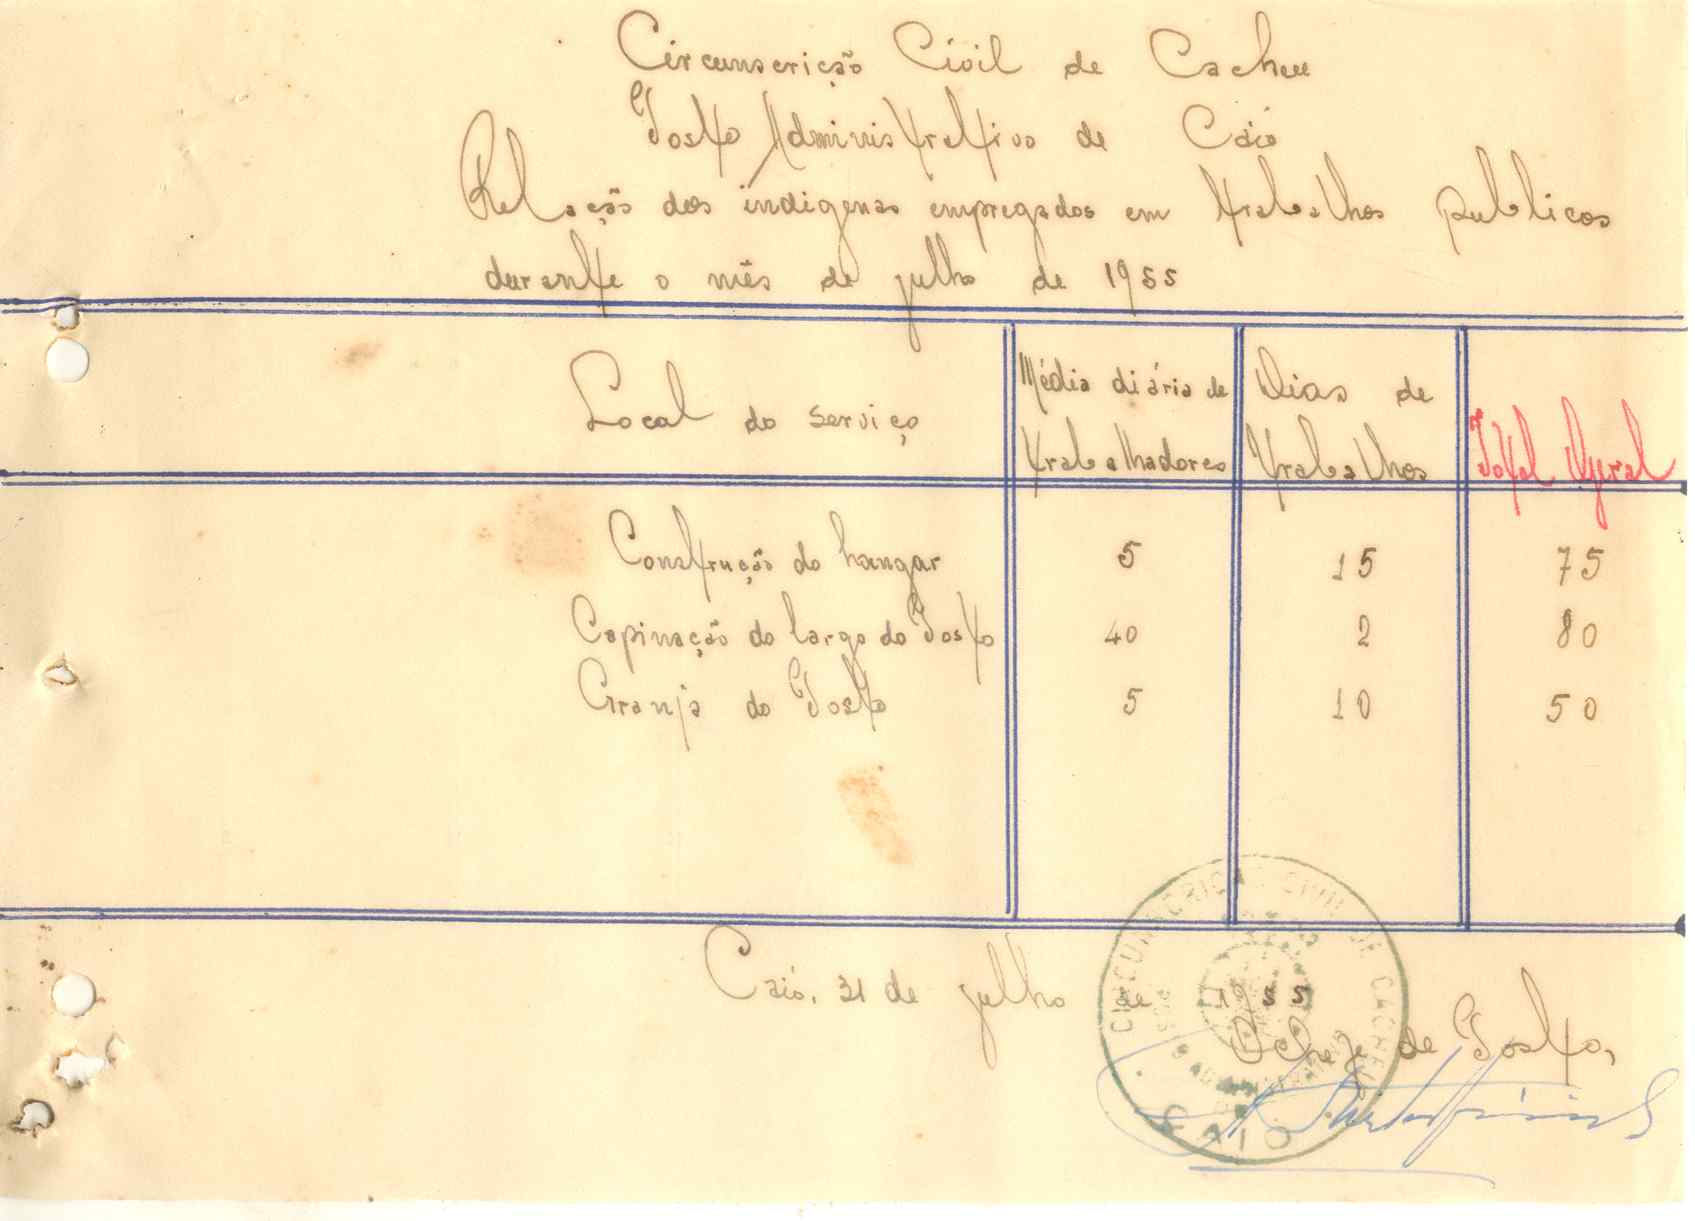 Circunscrição Civil de Cacheu
Posto Administrativo de Caió
Relação dos indigenas empregados em trabalhos publicos
durante o mês de julho de 1955
Local do serviço
Média diária de trabalhadores
Dias de trabalhos
Total Geral
Construção do hangar 5 15 75
Capinação do largo do Posto 40 2 80
Granja do Posto 5 10 50
Caió, 31 de julho de 1955
O Chefe de Posto,
CIRCUNSCRIÇÃO CIVIL DE CACHEU
CAIO